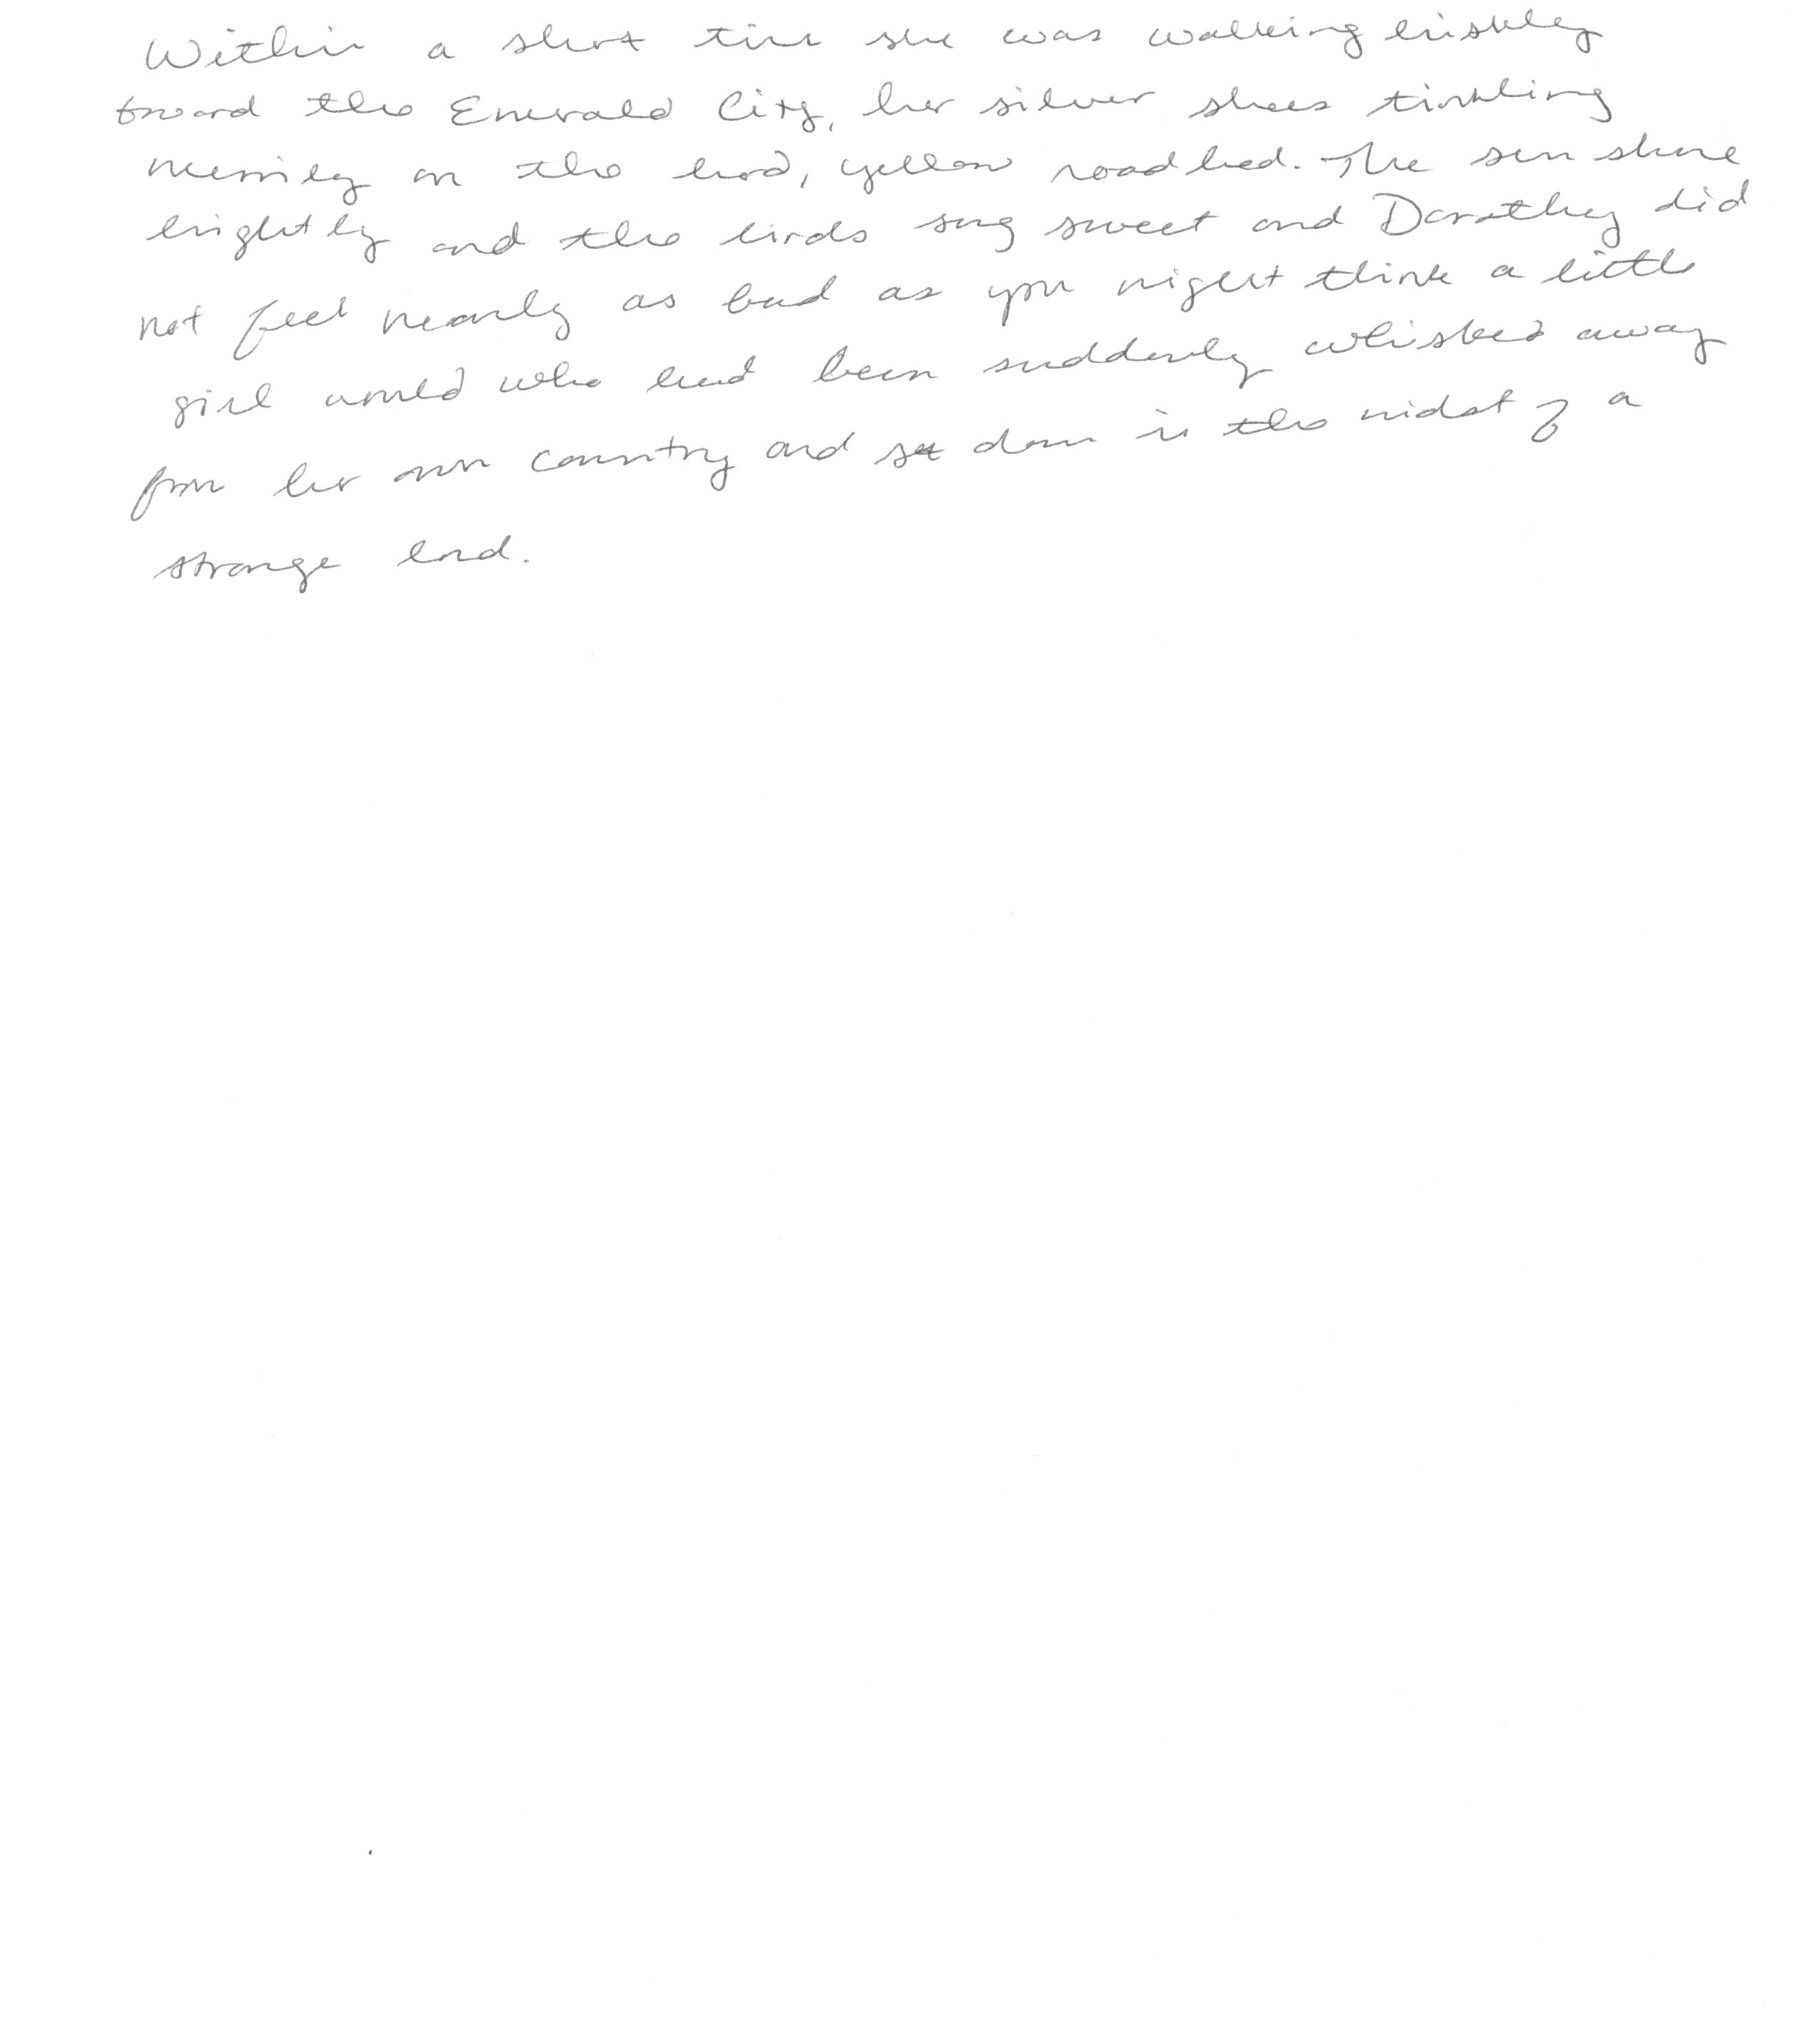 Within a short time she was walking briskly
toward the Emerald City, her silver shoes tinkling
merrily on the hard, yellow roadbed. The sun shone
brightly and the birds sang sweet and Dorothy did
not feel nearly as bad as you might think a little
girl would who had been suddenly whisked away
from her own country and set down in the midst of a
strange land.